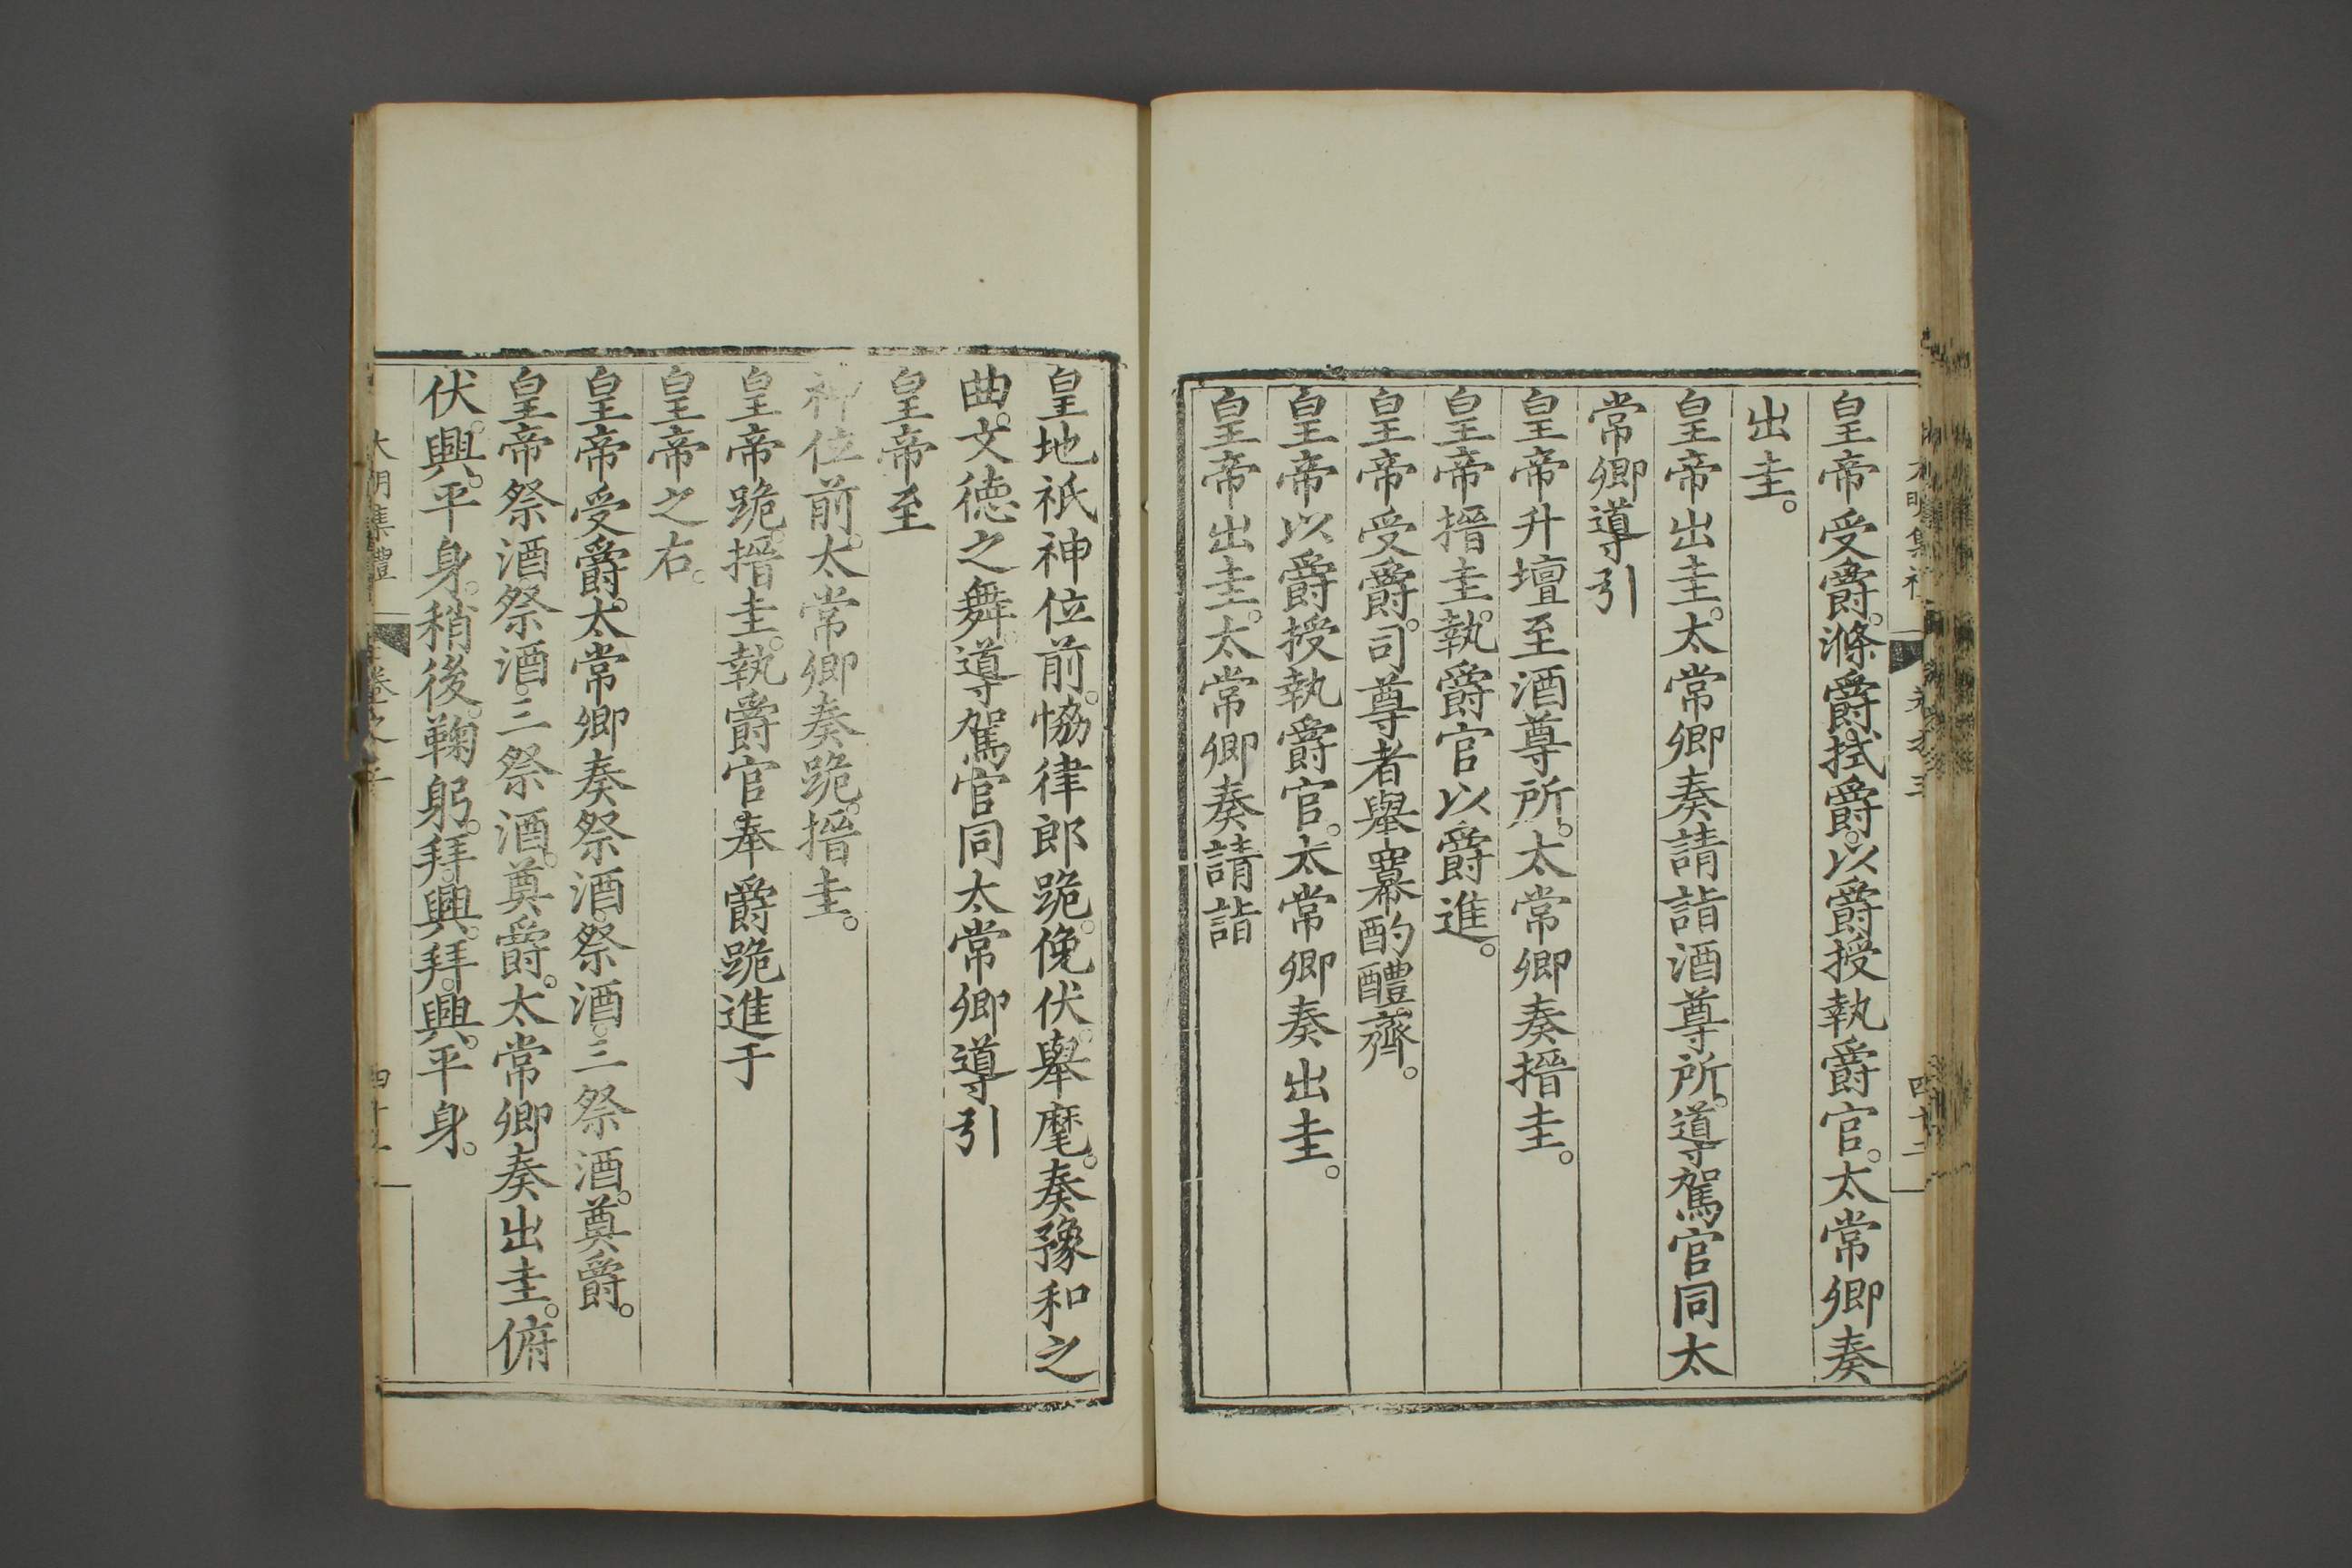 皇帝受爵。滌爵。拭爵。以爵授執爵官。太常卿奏
出圭。
皇帝出圭。太常卿奏請詣酒尊所。導駕官同太
常卿導引
皇帝升壇至酒尊所。太常卿奏搢圭。
皇帝搢圭。執爵官以爵進。
皇帝受爵。司尊者舉冪酌醴齊。
皇帝以爵授執爵官。太常卿奏出圭。
皇帝出圭。太常卿奏請詣
皇地祇神位前。恊律郎跪。俛伏。舉麾。奏豫和之
曲。文德之舞。導駕官同太常卿導引
皇帝至
神位前。太常卿奏跪。搢圭。
皇帝跪。搢圭。執爵官奉爵跪進于
皇帝之右。
皇帝受爵。太常卿奏祭酒。祭酒。三祭酒。奠爵。
皇帝祭酒祭酒。三祭酒。奠爵。太常卿奏出圭。俯
伏。興。平身。稍後。鞠躬。拜。興。拜。興。平身。
大明集禮
卷之
四十